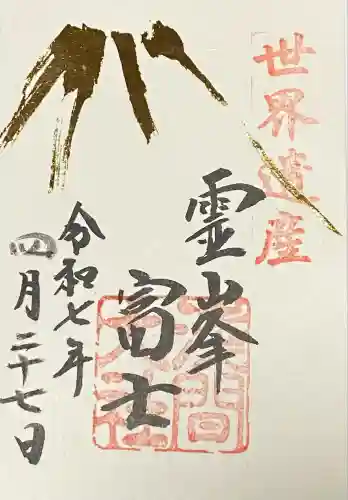 世界遺産
霊峯
冨士
令和七年
四月二十七日